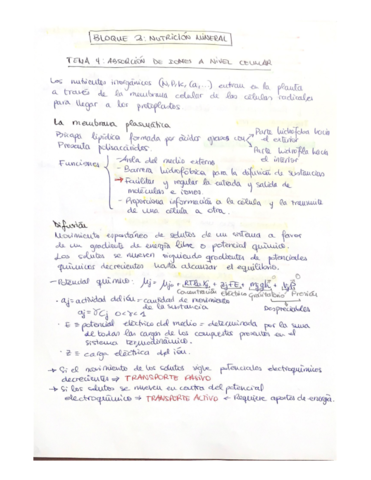 BLOQUE 2: NUTRICIÓN MINERAL
TEMA 4: ABSORCIÓN DE IONES A NIVEL CELULAR
Los nutrientes inorgánicos (N, P, K, Ca, ...) entran en la planta
a través de la membrana celular de las células radicales
para llegar a los protoplastos
La membrana plasmática
Bicapa lipídica formada por ácidos grasos con
Parte hidrófoba hacia
el exterior
Presenta polisacáridos.
Parte hidrófila hacia
el interior
Funciones
- Aisla del medio externo
- Barrera hidrofóbica para la difusión de sustancias
→ Facilitar y regular la entrada y salida de
moléculas e iones.
- Proporciona información a la célula y la transmite
de una célula a otra.
Difusión
Movimiento espontáneo de solutos de un sistema a favor
de un gradiente de energía libre o potencial químico.
Los solutos se mueven siguiendo gradientes de potenciales
químicos decrecientes hasta alcanzar el equilibrio.
- Potencial químico:
concentración eléctrico gravitatorio Presión
· aj = actividad del ión = cantidad de movimiento
de la sustancia
Despreciables
aj = γCj 0<γ<1
· E = potencial eléctrico del medio = determinada por la suma
de todas las cargas de los compuestos presentes en el
sistema termodinámico.
· Z = carga eléctrica del ión.
→ Si el movimiento de los solutos sigue potenciales electroquímicos
decrecientes → TRANSPORTE PASIVO
→ Si los solutos se mueven en contra del potencial
electroquímico → TRANSPORTE ACTIVO - Requiere aportes de energía.